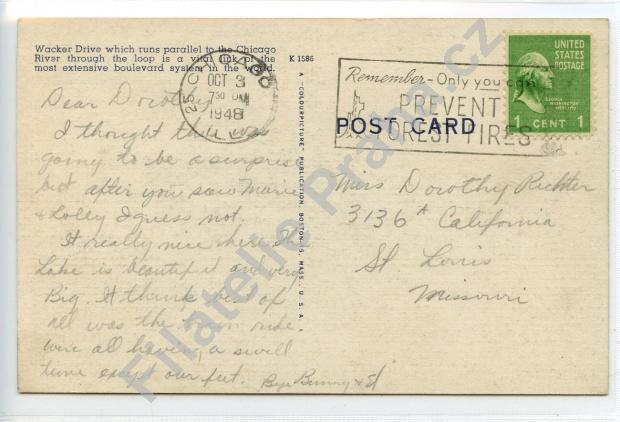 Wacker Drive which runs parallel to the Chicago
River through the loop is a vital link of the
most extensive boulevard system in the world.
K 1586
CHICAGO
OCT 3
7 30 PM
1948
Remember - Only you can
PREVENT
FOREST FIRES
UNITED
STATES
POSTAGE
1 CENT 1
POST CARD
A "COLOURPICTURE" PUBLICATION, BOSTON 15, MASS., U.S.A.
Dear Dorothy
I thought this was
going to be a surprise
but after you saw Marie
& Lolly I guess not.
It really nice here. The
Lake is beautiful and very
Big. I think best of
all was the train ride
were all having a swell
time except our feet.
Bye Bunny & El
Miss Dorothy Richter
3136 A California
St Louis
Missouri
Filatelie Praha.cz